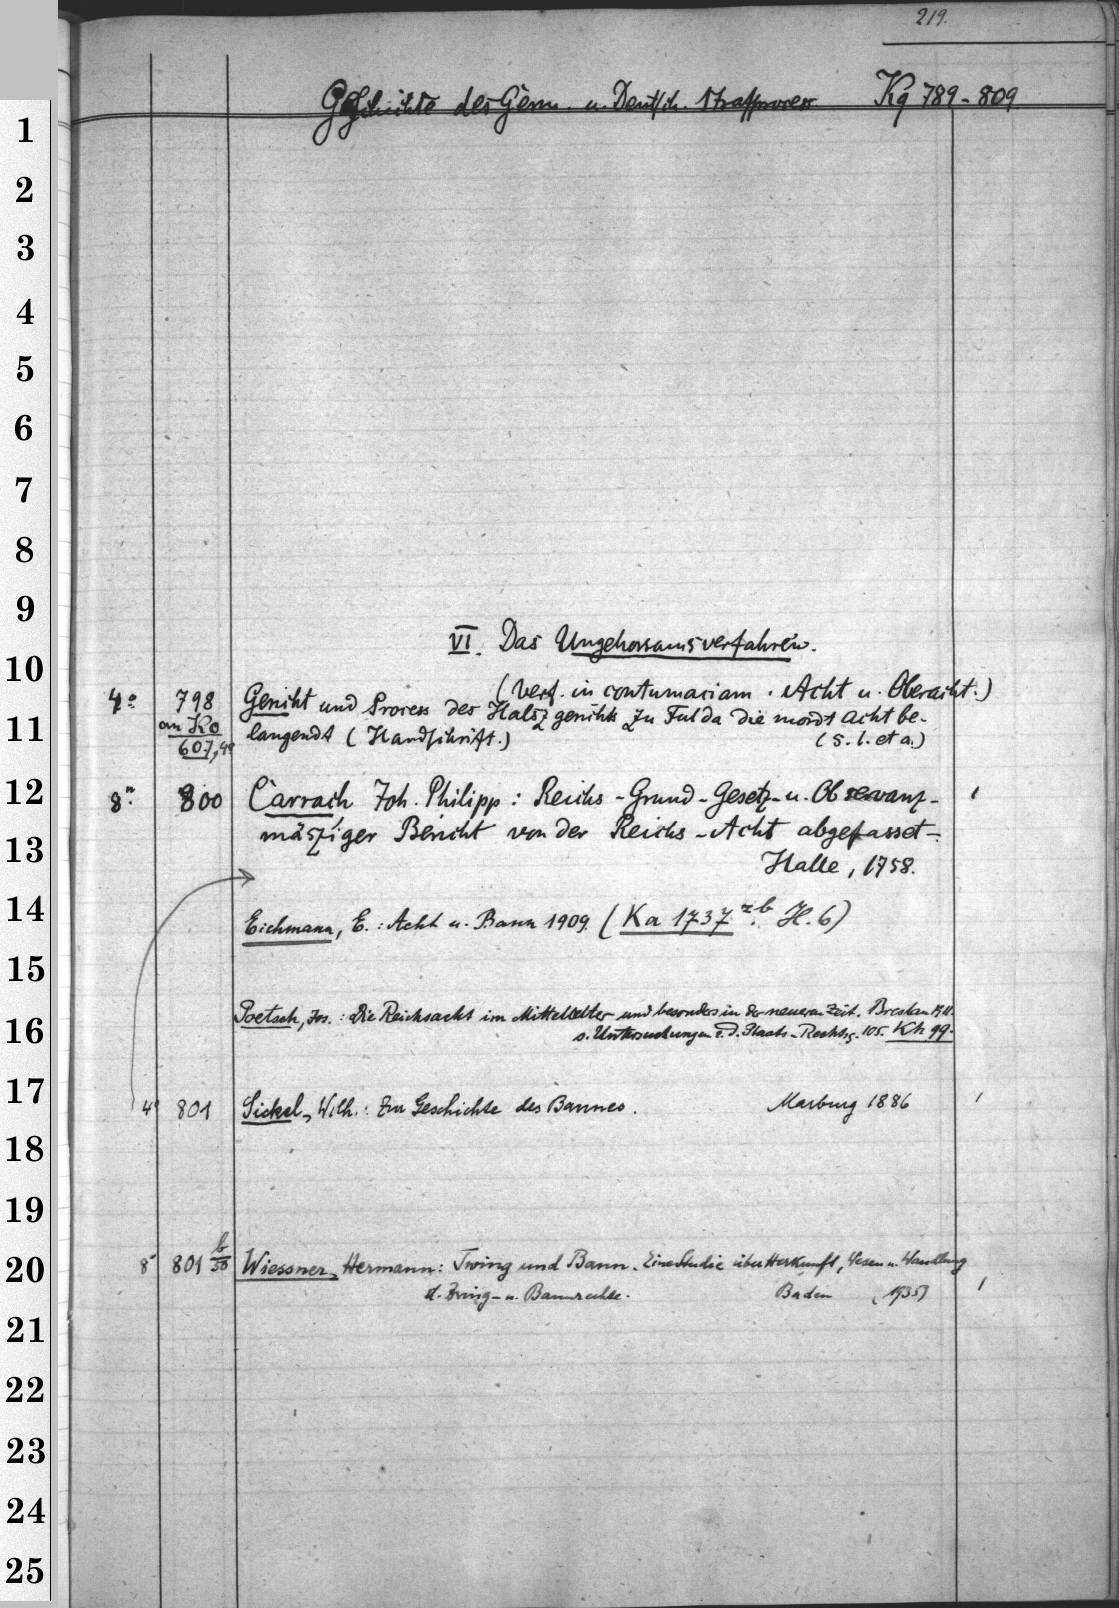 219.
Geschichte des Germ. u. Deutsch. Strafprozess Kq 789-809
1
2
3
4
5
6
7
8
9
VI. Das Ungehorsamsverfahren.
10
(Verf. in contumaciam. Acht u. Oberacht.)
4° 798 Gericht und Process des Halsz gerichts zu Fulda die mordt acht be-
11 an Ko 607,4° langendt (Handschrift.) (s. l. et a.)
12 8° 800 Carrach Joh. Philipp: Reichs-Grund-Gesetz- u. Observanz-
13 mäsziger Bericht von der Reichs-Acht abgefasset-.
Halle, 1758.
14 Eichmann, E.: Acht u. Bann 1909. (Ka 1737 zb H. 6)
15
Poetsch, Jos.: Die Reichsacht im Mittelalter und besonders in der neueren Zeit. Breslau 1911.
16 s. Untersuchungen z. D. Staats-Rechtsg. 105. Kh 99.
17 4° 801 Sickel, Wilh.: Zur Geschichte des Bannes. Marburg 1886
18
19
20 8° 801 b/50 Wiessner, Hermann: Twing und Bann. Eine Studie über Herkunft, Wesen u. Wandlung
d. Zwing- u. Bannrechte. Baden (1935)
21
22
23
24
25